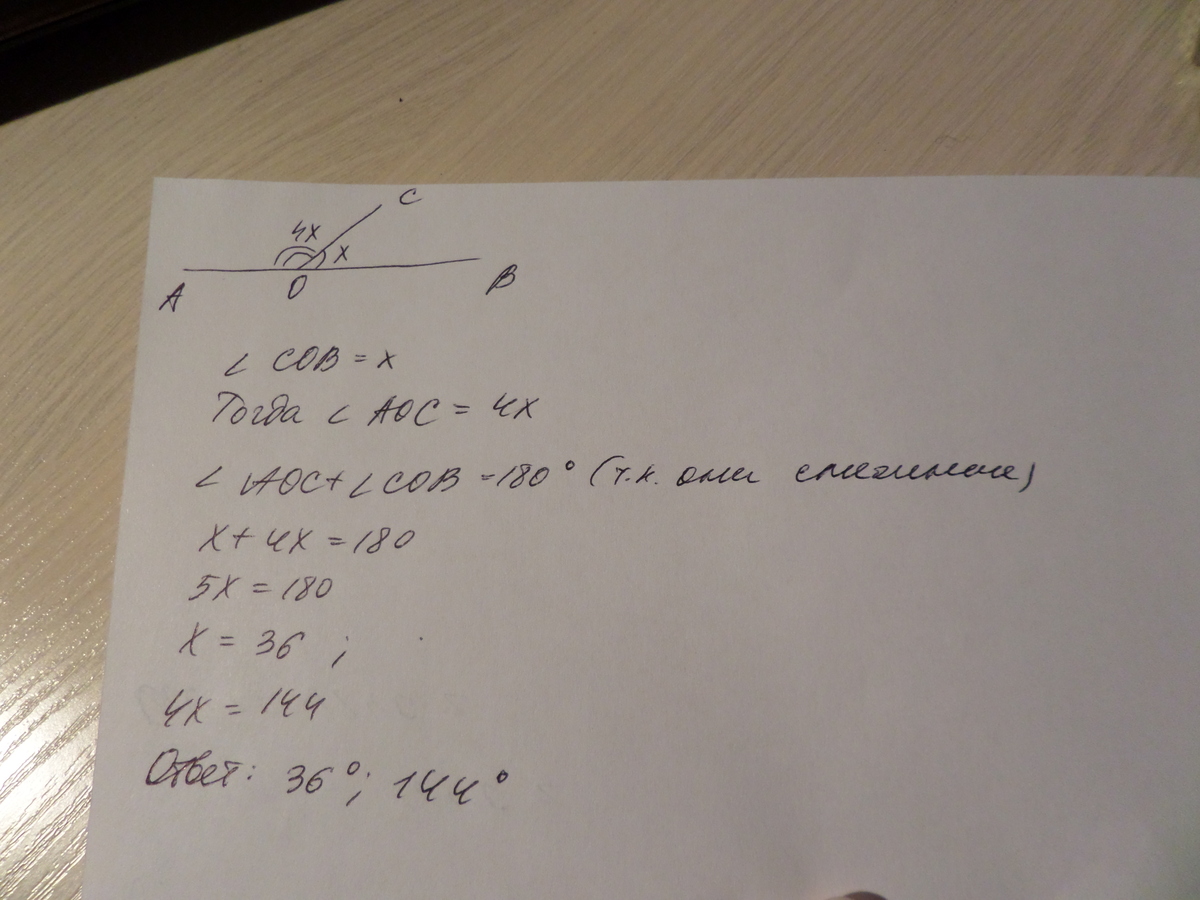 C
4x
x
A O B
∠ COB = x
Тогда ∠ AOC = 4x
∠ AOC + ∠ COB = 180° (т.к. они смежные)
x + 4x = 180
5x = 180
x = 36 ;
4x = 144
Ответ: 36°; 144°